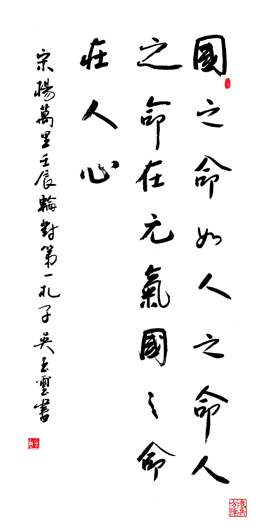 國之命如人之命人
之命在元氣國之命
在人心
宋楊萬里壬辰輪對第一札子吳玉雲書